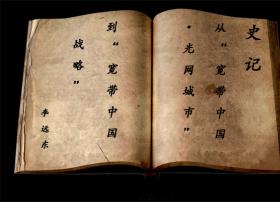 史记
从“宽带中国
·光网城市”
到“宽带中国
战略”
李远东